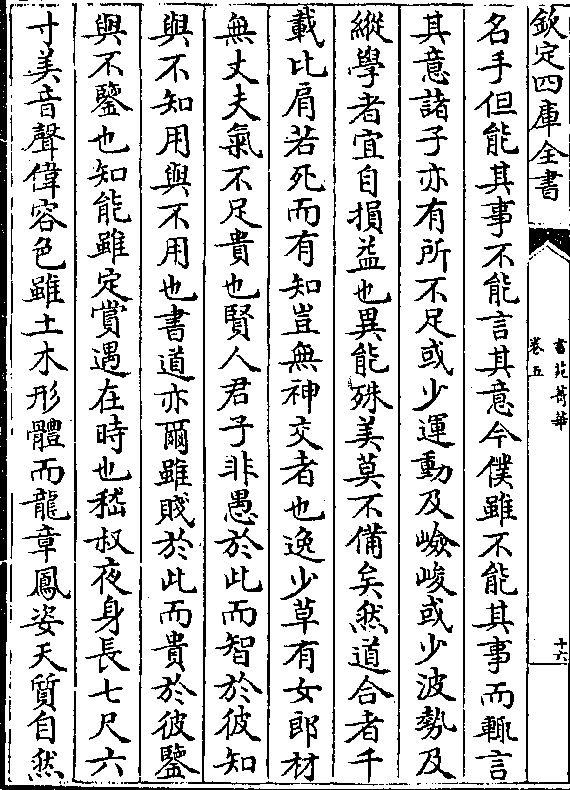 欽定四庫全書
書苑菁華
卷五
十六
名手但能其事不能言其意今僕雖不能其事而輒言
其意諸子亦有所不足或少運動及嶮峻或少波勢及
縱學者宜自損益也異能殊美莫不備矣然道合者千
載比肩若死而有知豈無神交者也逸少草有女郎材
無丈夫氣不足貴也賢人君子非愚於此而智於彼知
與不知用與不用也書道亦爾雖賤於此而貴於彼鑒
與不鑒也知能雖定賞遇在時也嵇叔夜身長七尺六
寸美音聲偉容色雖土木形體而龍章鳳姿天質自然